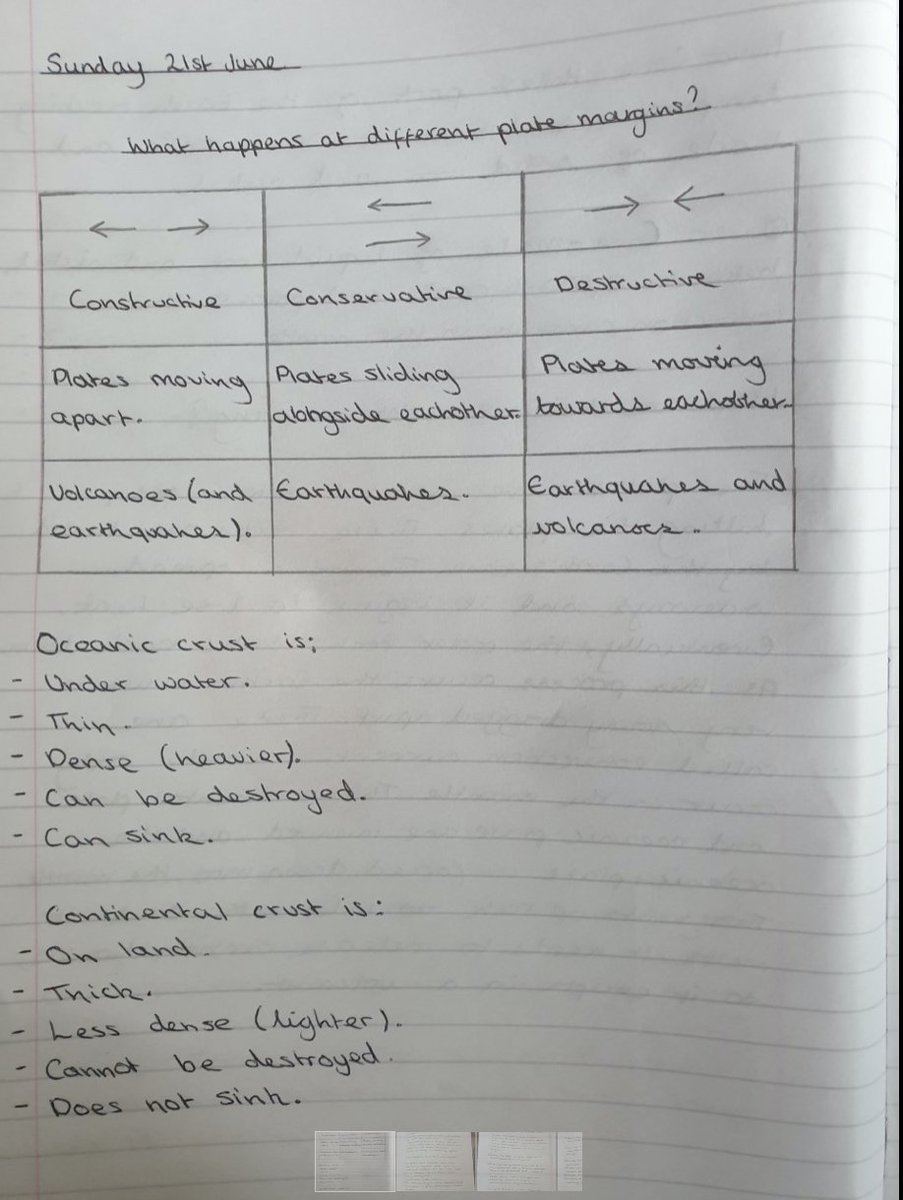 Sunday 21st June
What happens at different plate margins?
← →
←
→
→ ←
Constructive
Conservative
Destructive
Plates moving
apart.
Plates sliding
alongside eachother.
Plates moving
towards eachother.
Volcanoes (and
earthquakes).
Earthquakes.
Earthquakes and
volcanoes.
Oceanic crust is;
- Under water.
- Thin.
- Dense (heavier).
- Can be destroyed.
- Can sink.
Continental crust is:
- On land.
- Thick.
- Less dense (lighter).
- Cannot be destroyed.
- Does not sink.